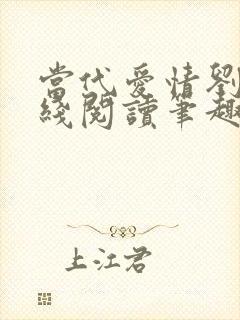 當代愛情劉
綫閱讀筆趣
上江君